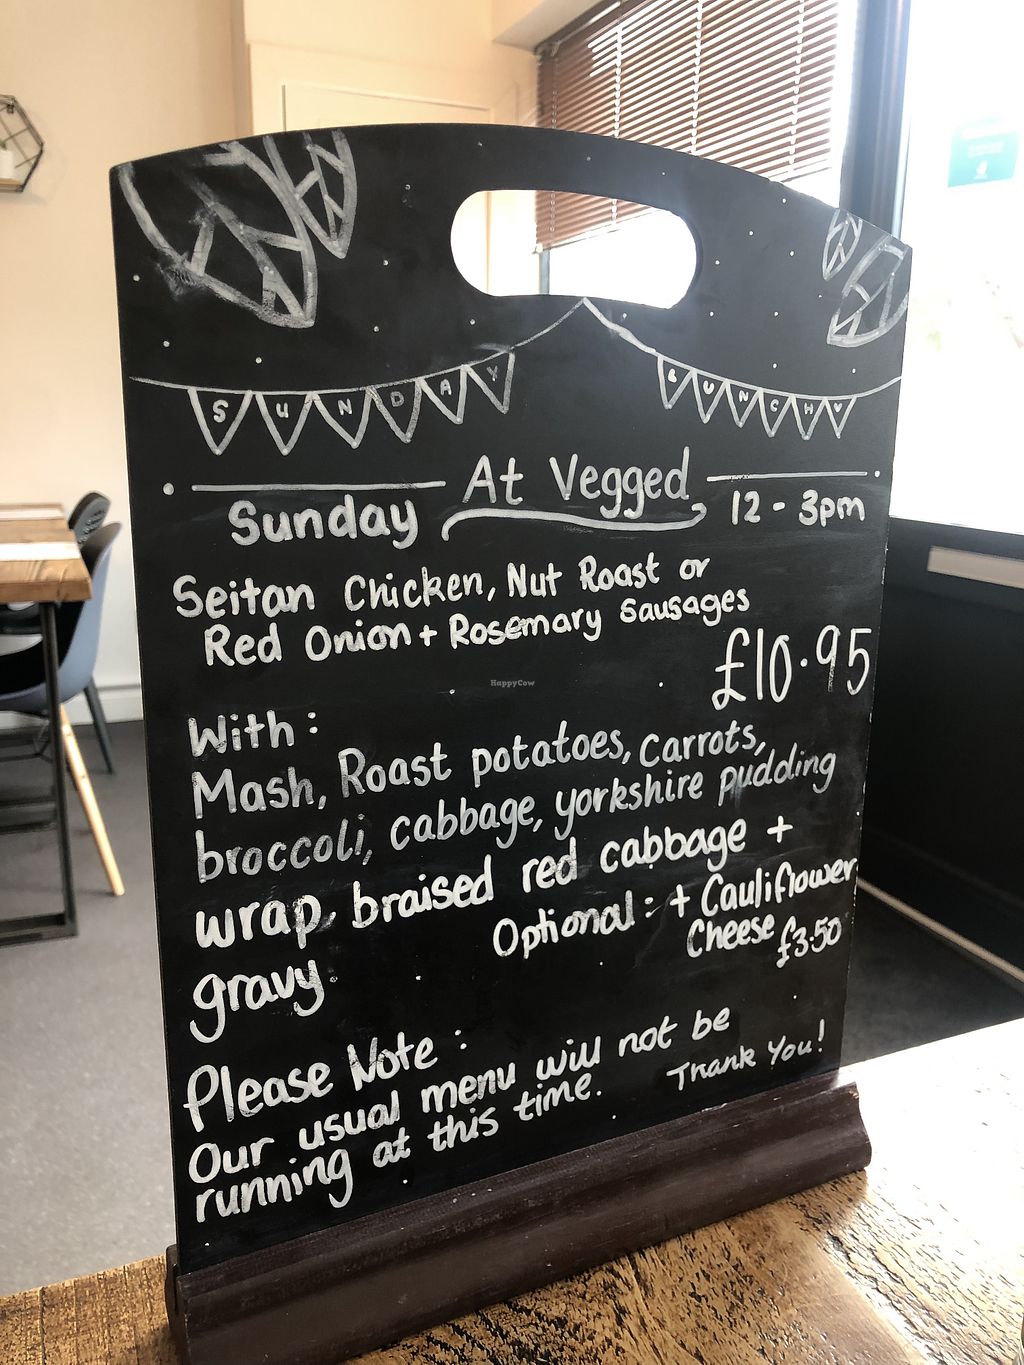 SUNDAY LUNCH ♥
At Vegged
Sunday 12 - 3pm
Seitan Chicken, Nut Roast or
Red Onion + Rosemary Sausages
£10.95
HappyCow
With :
Mash, Roast potatoes, Carrots,
broccoli, cabbage, yorkshire pudding
wrap, braised red cabbage +
gravy.
Optional : + Cauliflower
Cheese £3.50
Please Note :
Our usual menu will not be
running at this time.
Thank You!